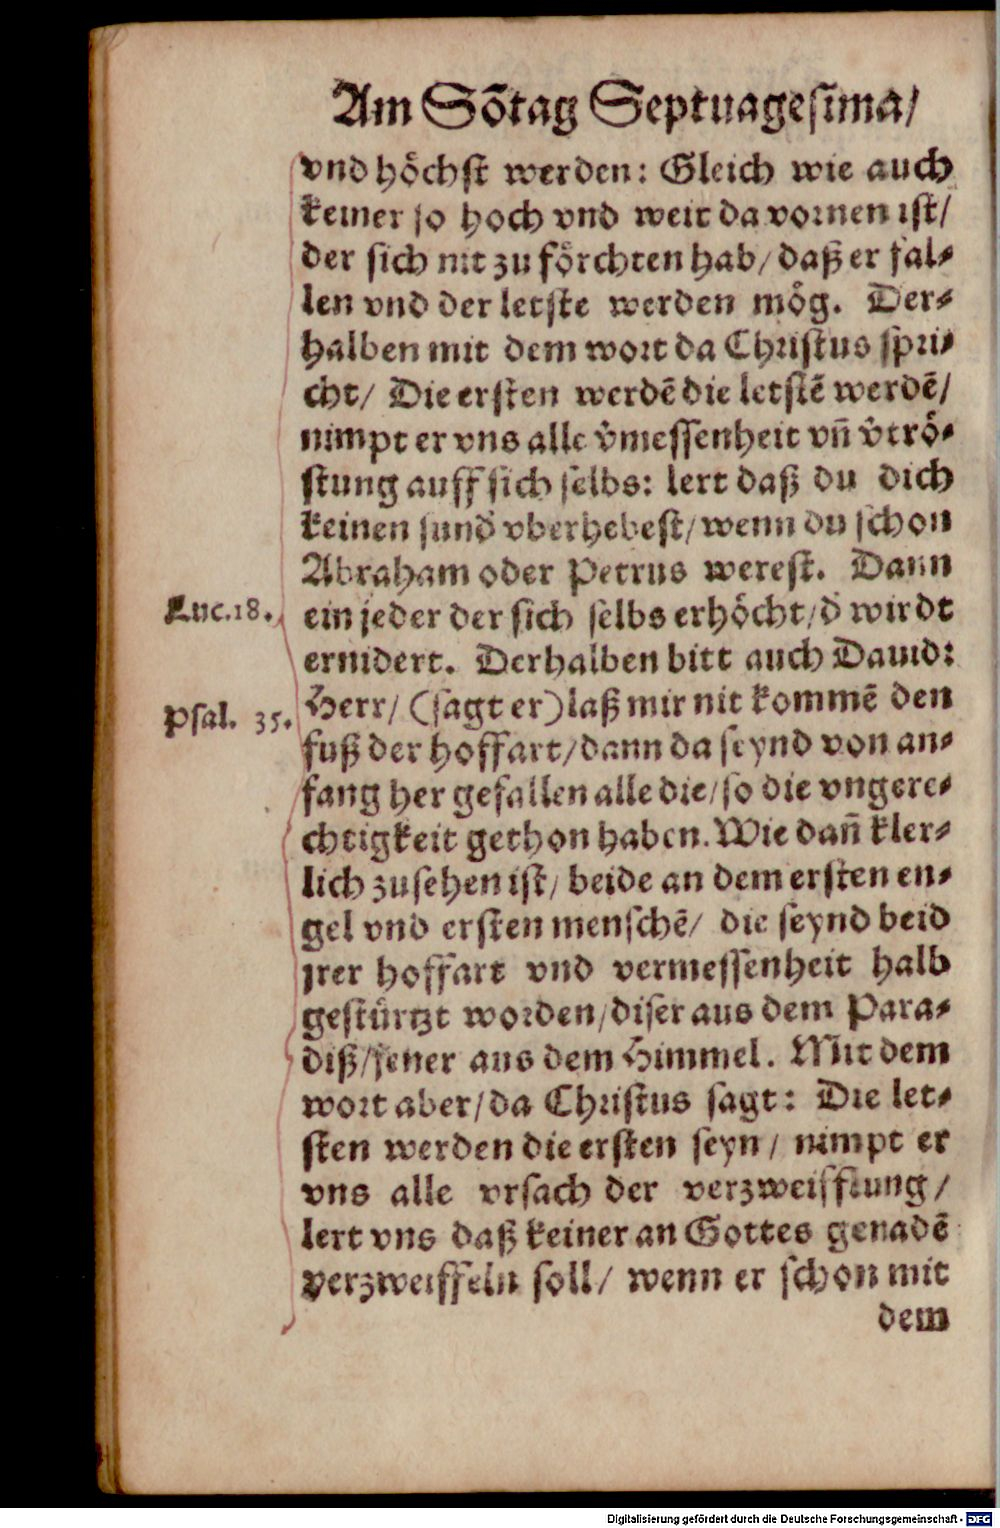 Am Sõtag Septuagesima/
vnd höchst werden: Gleich wie auch
keiner so hoch vnd weit da vornen ist/
der sich nit zu förchten hab/ daß er fal⸗
len vnd der letste werden mög. Der⸗
halben mit dem wort da Christus spri⸗
cht/ Die ersten werdẽ die letstẽ werdẽ/
nimpt er vns alle v̊messenheit vñ v̊trö⸗
stung auff sich selbs: lert daß du dich
keinen sund̾ vberhebest/ wenn du schon
Abraham oder Petrus werest. Dann
Luc.18. ein jeder der sich selbs erhöcht/ d̾ wirdt
ernidert. Derhalben bitt auch Dauid:
Psal. 35. Herr/ (sagt er) laß mir nit kommẽ den
fuß der hoffart/ dann da seynd von an⸗
fang her gefallen alle die/ so die vngere⸗
chtigkeit gethon haben. Wie dañ kler⸗
lich zusehen ist/ beide an dem ersten en⸗
gel vnd ersten menschẽ/ die seynd beid
jrer hoffart vnd vermessenheit halb
gestürtzt worden/ diser aus dem Para⸗
diß/ jener aus dem Himmel. Mit dem
wort aber/ da Christus sagt: Die let⸗
sten werden die ersten seyn/ nimpt er
vns alle vrsach der verzweifflung/
lert vns daß keiner an Gottes genadẽ
verzweiffeln soll/ wenn er schon mit
dem
Digitalisierung gefördert durch die Deutsche Forschungsgemeinschaft - DFG